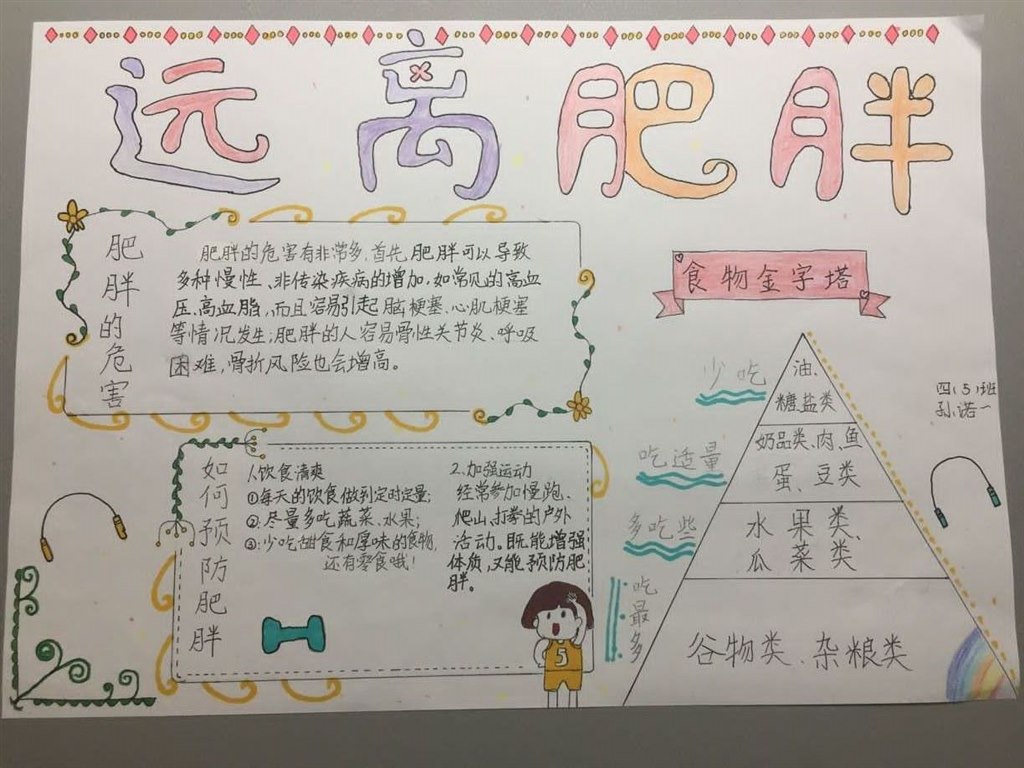 远离肥胖
肥胖的危害
肥胖的危害有非常多,首先,肥胖可以导致
多种慢性、非传染疾病的增加,如常见的高血
压、高血脂,而且容易引起脑梗塞、心肌梗塞
等情况发生;肥胖的人容易骨性关节炎、呼吸
困难,骨折风险也会增高。
食物金字塔
少吃
油、
糖、盐类
四(5)班
孙诺一
吃适量
奶品类、肉、鱼
蛋、豆类
多吃些
水果类、
瓜菜类
吃最多
谷物类、杂粮类
如何预防肥胖
1.饮食清爽
①每天的饮食做到定时定量;
②.尽量多吃蔬菜、水果;
③:少吃甜食和厚味的食物,
还有零食哦!
2.加强运动
经常参加慢跑、
爬山、打拳的户外
活动。既能增强
体质,又能预防肥
胖。
5